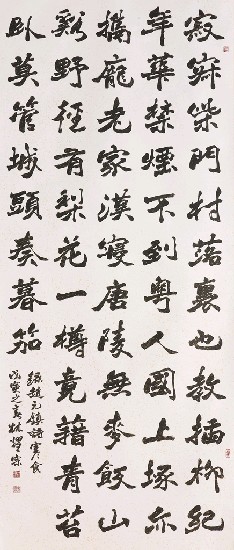 寂寞柴門村落裏也教插柳紀
年華禁煙不到粤人國上塚亦
攜龐老家漢寢唐陵無麥飯山
谿野徑有棃花一樽竟藉青苔
臥莫管城頭奏暮笳
錄趙元鎮詩寒食
之春林